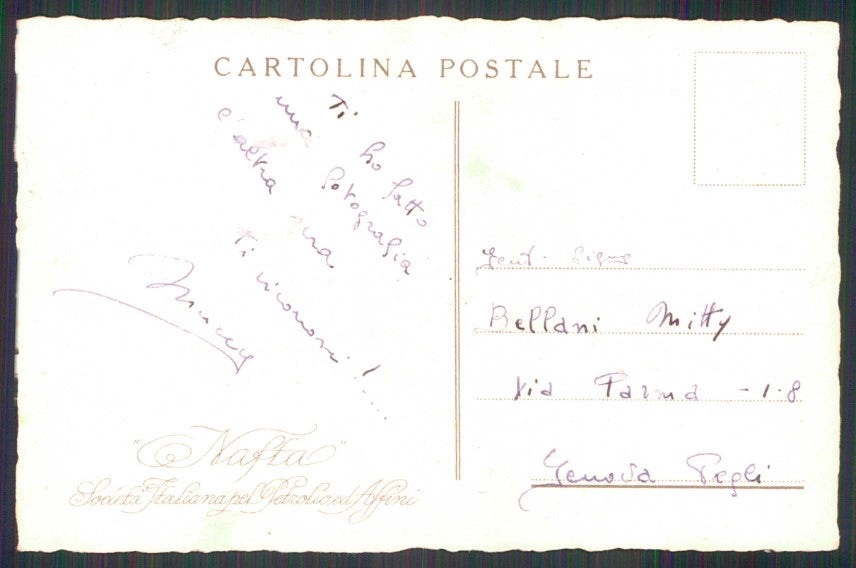 CARTOLINA POSTALE
Ti ho fatto
una fotografia
l'altra sera
Ti riconosci!....
Gent. Sigra
Bellani Mitty
Via Parma - 1-8
Genova Pegli
"Nafta"
Società Italiana pel Petrolio ed Affini